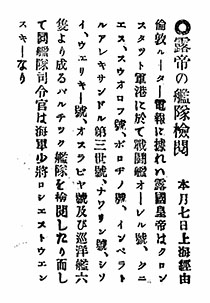 ◎露帝の艦隊檢閲　本月七日上海經由
倫敦ルーター電報に據れバ露國皇帝はクロン
スタット軍港に於て戰鬪艦オーレル號、クニ
エス、スウオロフ號、ボロヂノ號、インペラト
ルアレキサンドル第三世號、ナワリン號、シソ
イ、ウェリキー號、オスラビヤ號及び巡洋艦六
隻より成るバルチック艦隊を檢閲したり而し
て同艦隊司令官は海軍少將ロシエストウエン
スキーなり